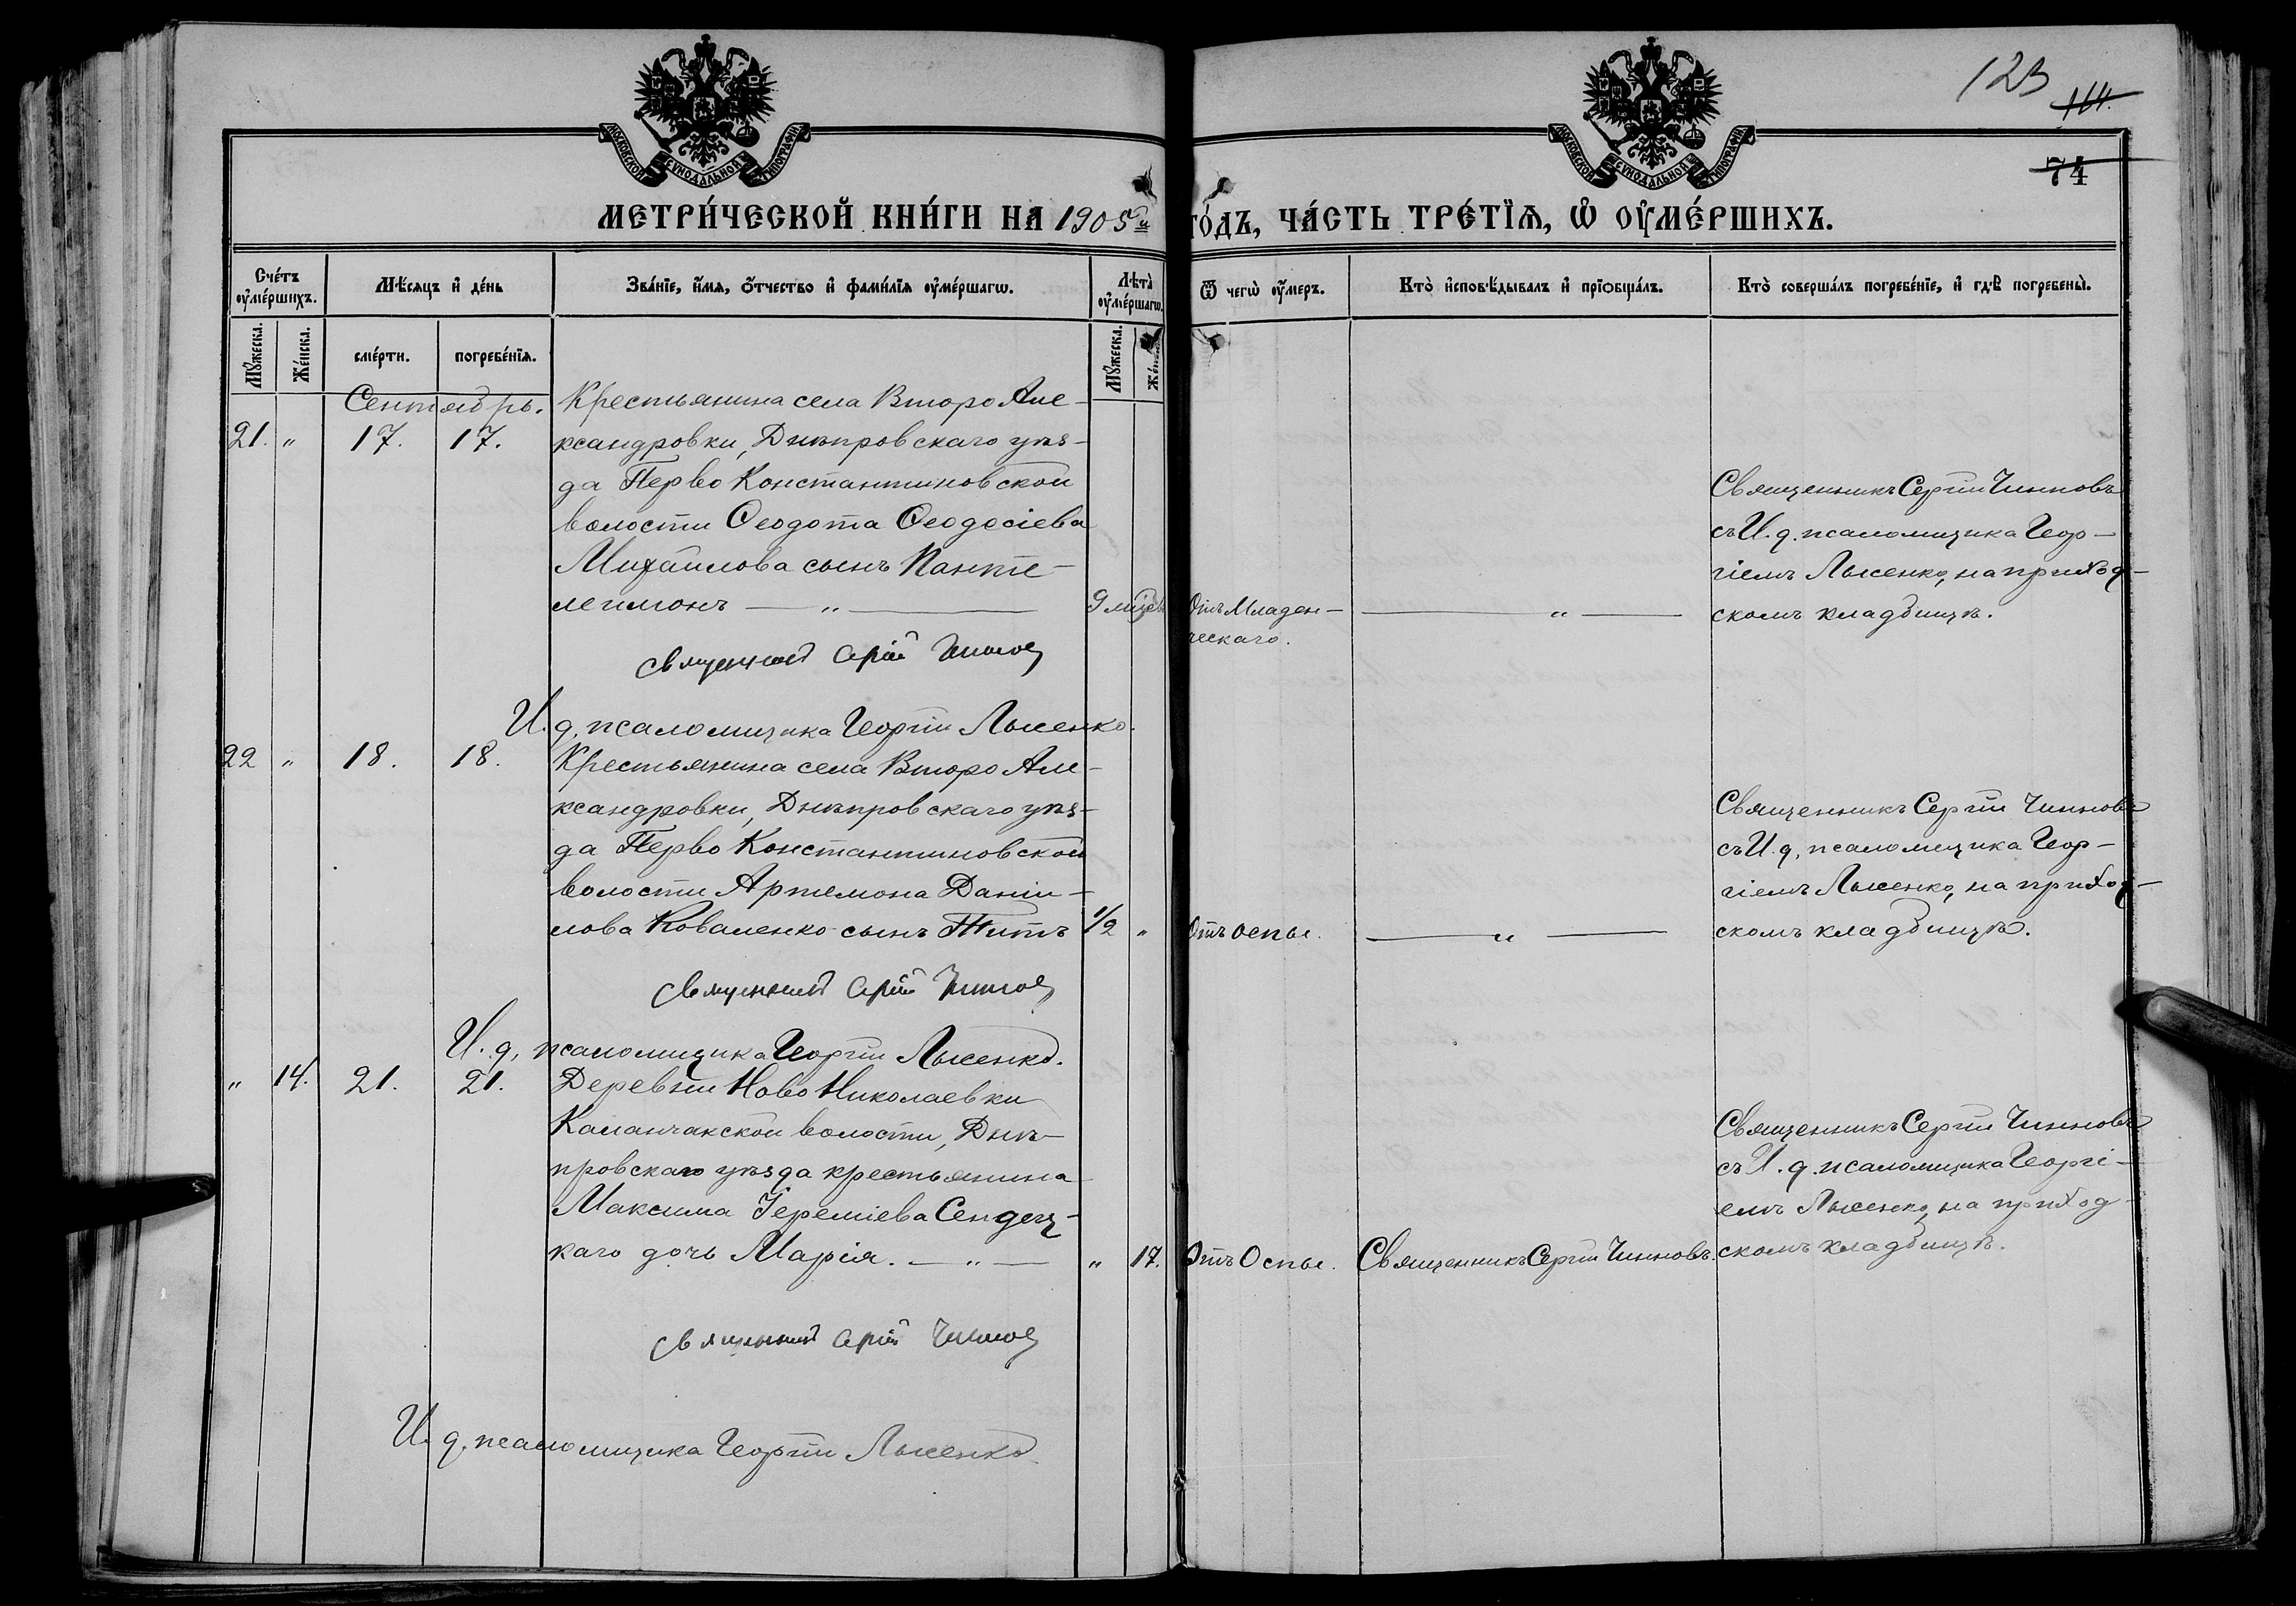 123
164.
74
МОСКОВСКОЙ СѴНОДАЛЬНОЙ ТИПОГРАФІИ
МОСКОВСКОЙ СѴНОДАЛЬНОЙ ТИПОГРАФІИ
МЕТРИ́ЧЕСКОЙ КНИ́ГИ НА 1905й ГО́ДЪ, ЧА́СТЬ ТРЕ́ТЇѦ, Ѡ҆ ОУ҆МЕ́РШИХЪ.
Сче́тъ оу҆ме́ршихъ.
Мѣ́сяцъ и҆ де́нь
Зва́нїе, и҆́мя, ѻ҆́тчество и҆ фами́лїя оу҆ме́ршагѡ.
Лѣта̀ оу҆ме́ршагѡ.
Ѿ чегѡ̀ оу҆́меръ.
Кто̀ и҆сповѣ́дывалъ и҆ прїѡбща́лъ.
Кто̀ соверша́лъ погребе́нїе, и҆ гдѣ̀ погребены̀.
Мꙋ́жеска.
Же́нска.
сме́рти.
погребе́нїя.
Мꙋ́жеска.
Сентябрь.
Крестьянина села Второ Але-
21. „ 17. 17. ксандровки, Днѣпровскаго уѣз-
да Перво Константиновской
волости Ѳеодота Ѳеодосіева
Михайлова сынъ Панте-
леимонъ — „ —
9 мѣс
Отъ Младен-
ческаго.
— „ —
Священникъ Сергій Чинновъ
съ И. д. псаломщика Геор-
гіемъ Лысенко, на приход-
скомъ кладбищѣ.
Священникъ Сергій Чинновъ
И. д. псаломщика Георгій Лысенко.
22 „ 18. 18. Крестьянина села Второ Але-
ксандровки, Днѣпровскаго уѣз-
да Перво Константиновской
волости Артемона Даніи-
лова Коваленко сынъ Титъ
1/2 „
Отъ оспы.
— „ —
Священникъ Сергій Чинновъ
съ И. д. псаломщика Геор-
гіемъ Лысенко, на приход-
скомъ кладбищѣ.
Священникъ Сергій Чинновъ
И. д. псаломщика Георгій Лысенко.
„ 14. 21. 21. Деревни Ново Николаевки
Каланчакской волости, Днѣ-
провскаго уѣзда крестьянина
Максима Іереміева Сендец-
каго дочь Марія. — „ —
„ 17.
Отъ Оспы.
Священникъ Сергій Чинновъ.
Священникъ Сергій Чинновъ
съ И. д. псаломщика Георгі-
емъ Лысенко, на приход-
скомъ кладбищѣ.
Священникъ Сергій Чинновъ
И. д. псаломщика Георгій Лысенко